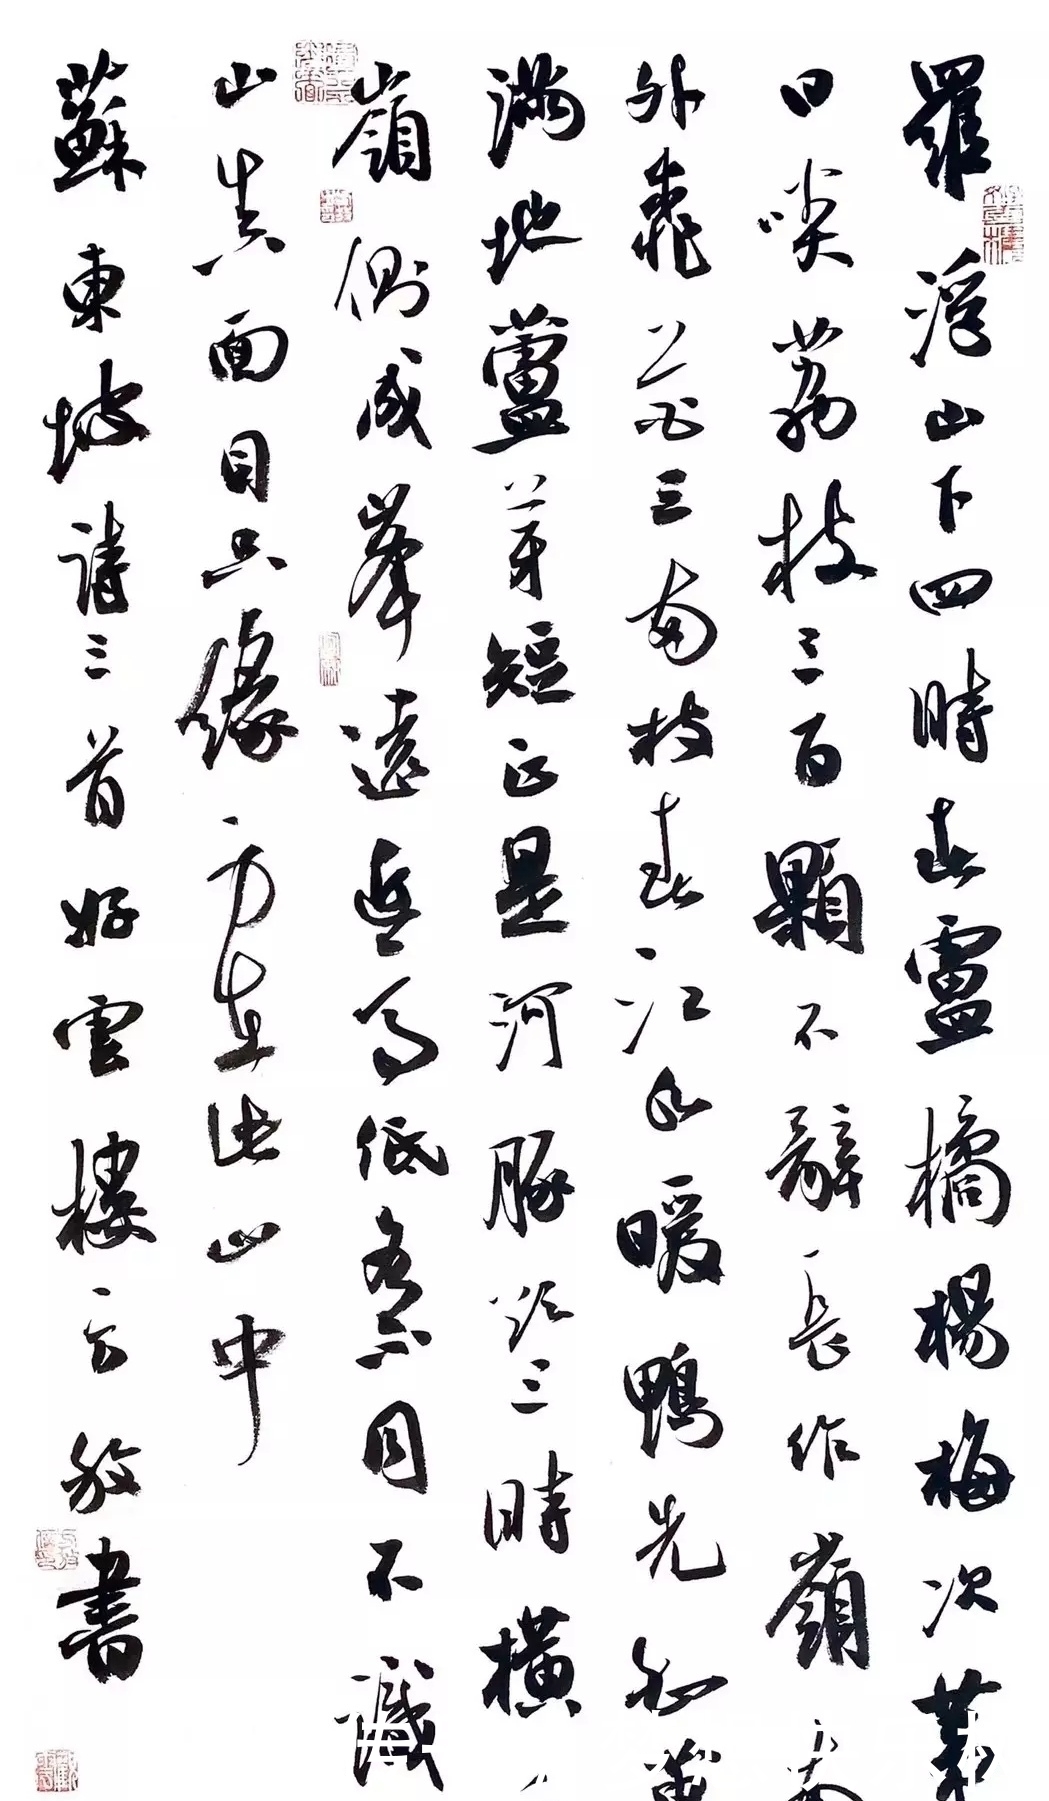 羅浮山下四時春盧橘楊梅次第
日啖荔枝三百顆不辭長作嶺南
外桃花三兩枝春江水暖鴨先知蔞
滿地蘆芽短正是河豚欲上時橫
嶺側成峯遠近高低各不同不識
山真面目只緣身在此山中
蘇東坡詩三首好雲樓書